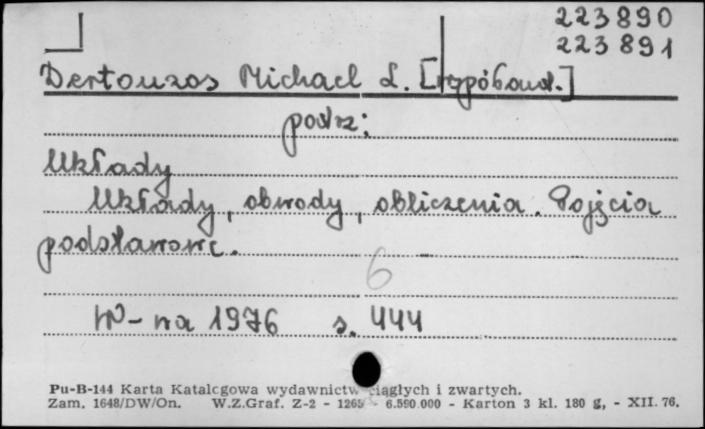 223890
223891
Dertouzos Michael L. [współaut.]
podrz:
Układy
Układy, obwody, obliczenia. Pojęcia
podstawowe.
6
W-wa 1976 s. 444
Pu-B-144 Karta Katalogowa wydawnictw ciągłych i zwartych.
Zam. 1648/DW/On. W.Z.Graf. Z-2 - 1265 - 6.590.000 - Karton 3 kl. 180 g, - XII. 76.